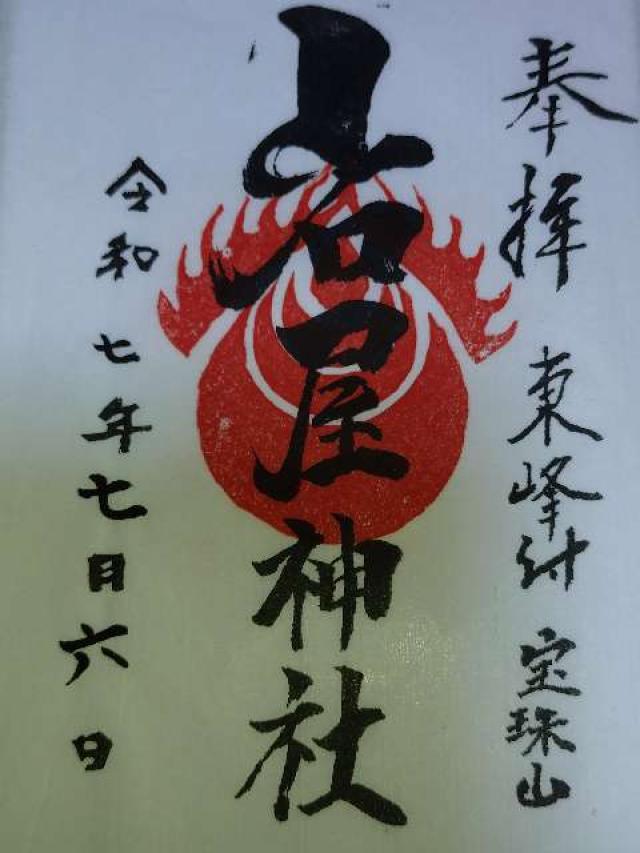 奉拝 東峰村 宝珠山
岩屋神社
令和七年七月六日